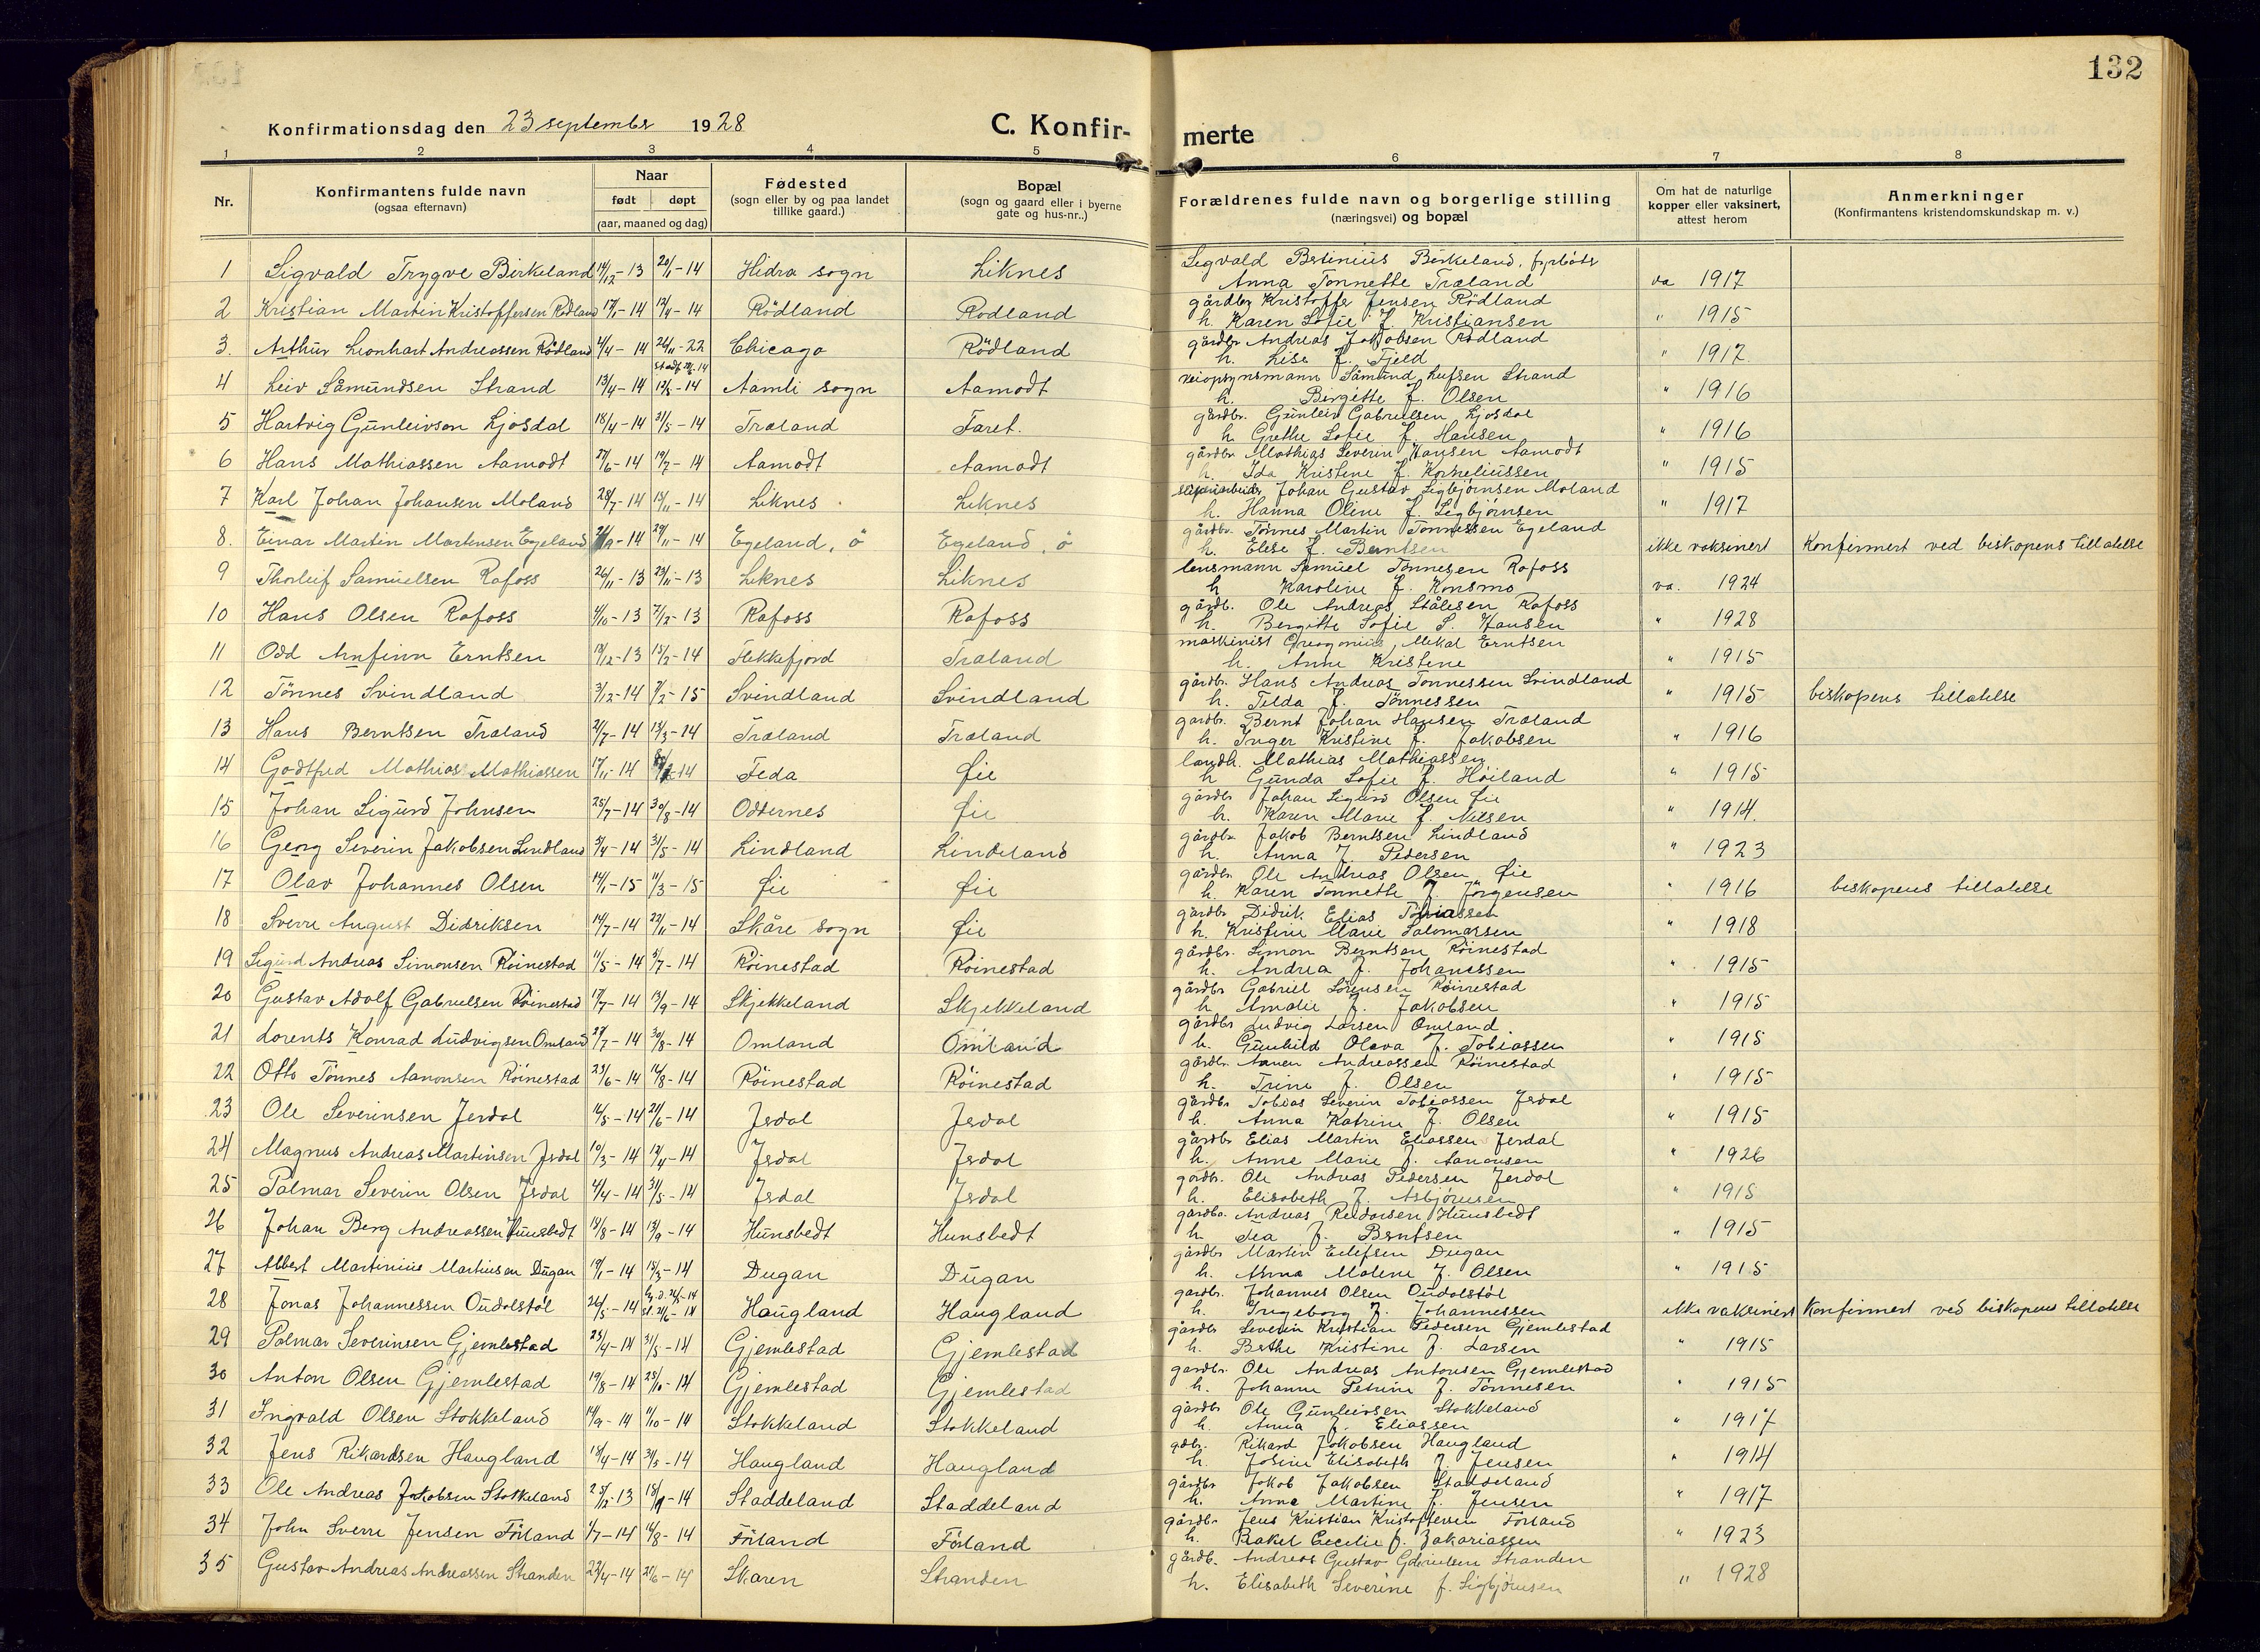 132
Konfirmationsdag den 23 septembr 1928 C. Konfir- merte
1 2 3 4 5 6 7 8
Nr. Konfirmantens fulde navn (ogsaa efternavn) Naar født døpt (aar, maaned og dag) Fødested (sogn eller by og paa landet tillike gaard.) Bopæl (sogn og gaard eller i byerne gate og hus-nr..) Forældrenes fulde navn og borgerlige stilling (næringsvei) og bopæl Om hat de naturlige kopper eller vaksinert, attest herom Anmerkninger (Konfirmantens kristendomskundskap m. v.)
1 Sigvald Trygve Birkeland 14/12-13 20/1-14 Hidra sogn Liknes Sigvald Bertinius Birkeland,
Anna Tonnette Træland va 1917
2 Kristian Martin Kristoffersen Rødland 17/1-14 12/4-14 Rødland Rødland gårdbr Kristoffer Jensen Rødland
h. Karen Sofie f. Kristiansen " 1915
3. Arthur Leonhart Andreassen Rødland 4/4-14 26/11-22 Chicago Rødland gårdbr Andreas Jakobsen Rødland
h. Lise f. Fjeld " 1917
4 Leiv Såmundsen Strand 13/4-14 Aamli sogn Aamodt veiopsynsmann Såmund Leifsen Strand
h. Birgitte f. Olsen " 1916
5 Hartvig Gunleivson Ljosdal 18/4-14 31/5-14 Træland Faret. gårdbr. Gunleiv Gabrielsen Ljosdal
h. Grethe Sofie f. Hansen " 1916
6 Hans Mathiassen Aamodt 27/6-14 19/7-14 Aamodt Aamodt gårdbr Mathias Severin Hansen Aamodt
h. Ida Kristine f. Korneliussen " 1915
7 Karl Johan Johansen Moland 28/7-14 15/11-14 Liknes Liknes Johan Gustav Sigbjørnsen Moland
h. Hanna Oline f. Sigbjørnsen " 1917
8. Einar Martin Martensen Egeland 29/11-14 Egeland, ö Egeland, ö gårdbr. Tønnes Martin Tønnessen Egeland
h. Elise f. Berntsen ikke vaksinert Konfirmert ved biskopens tillatelse
9 Thorleif Samuelsen Rafoss 26/11-13 23/11-13 Liknes Liknes lensmann Samuel Tønnesen Rafoss
h Karoline f. Konsmo va. 1924
10 Hans Olsen Rafoss 4/10-13 7/12-13 Rafoss Rafoss gårdb. Ole Andreas Ståлesen Rafoss
h. Bergitte Sofie S. Hansen " 1928
11 Odd Arnfinn Erntsen 19/12-13 15/2-14 Flekkefjord Træland maskinist Mikal Erntsen
h. Anne Kristine " 1915
12 Tønnes Svindland 3/12-14 7/2-15 Svindland Svindland gårdbr. Hans Andreas Tønnessen Svindland
h. Tilda f. Tønnessen " 1915 biskopens tillatelse
13 Hans Berntsen Træland 2/7-14 13/3-14 Træland Træland gardbr. Bernt Johan Hansen Træland
h. Inger Kristine f. Jakobsen " 1916
14 Godtfred Mathias Mathiassen 17/11-14 Feda Øie landh. Mathias Mathiassen
h Gunda Sofie f. Høiland " 1915
15 Johan Sigurd Johnsen 25/7-14 30/8-14 Oddernes Øie gårdbr Johan Sigurd Olsen Øie
h. Karen Marie f. Nilsen " 1914.
16 Georg Severin Jakobsen Lindland 5/4-14 31/5-14 Lindland Lindland gårdbr. Jakob Berntsen Lindland
h. Anna f. Pedersen " 1923
17 Olav Johannes Olsen 14/1-15 11/3-15 Øie Øie gårdbr. Ole Andreas Olsen Øie
h. Karen Tonnette f. Jørgensen " 1916 biskopens tillatelse
18 Sverre August Didriksen 14/7-14 22/11-14 Skåre sogn Øie gårdbr Didrik Elias Tobiassen
h. Kristine Marie Salomonsen " 1918
19 Sigurd Andreas Simonsen Røinestad 11/5-14 5/7-14 Røinestad Røinestad gårdbr. Simon Berntsen Røinestad
h. Andrea f. Johanessen " 1915
20 Gustav Adolf Gabrielsen Røinestad 17/7-14 13/9-14 Skjekkeland Skjekkeland gårdbr Gabriel Sørensen Røinestad
h Amalie f. Jakobsen " 1915
21 Lorents Konrad Ludvigsen Omland 27/7-14 30/8-14 Omland Omland gårdbr Ludvig Larsen Omland
h. Gunhild Olava f. Tobiassen " 1915
22 Otto Tønnes Aanonsen Røinestad 23/6-14 16/8-14 Røinestad Røinestad gårdbr. Aanen Andreassen Røinestad
h. Trine f. Olsen " 1915
23 Ole Severinsen Jerdal 16/5-14 21/6-14 Jerdal Jerdal gårdbr Tobias Severin Tobiassen Jerdal
h. Anna Katrine f. Olsen " 1915
24 Magnus Andreas Martinsen Jerdal 10/3-14 12/4-14 Jerdal Jerdal gårdbr Elias Martin Eliassen Jerdal
h. Anne Marie f. Aanonsen " 1926
25 Palmar Severin Olsen Jerdal 4/4-14 31/5-14 Jerdal Jerdal gårdbr. Ole Andreas Pedersen Jerdal
h. Elisabeth f. Asbjørnsen " 1915
26 Johan Berg Andreassen Hunsbedt 14/8-14 13/9-14 Hunsbedt Hunsbedt gårdbr. Andreas Reidarsen Hunsbedt
h. Tea f. Berntsen " 1915
27 Albert Martinius Martinsen Dugan 19/1-14 15/3-14 Dugan Dugan gårdbr Martin Eilefsen Dugan
h. Anna Malene f. Olsen " 1915
28 Jonas Johannessen Oudolstøl 26/5-14 Haugland Haugland gardbr. Johannes Olsen Oudolstøl
h. Ingeborg f. Johannessen ikke vaksinert Konfirmert ved biskopens tillatelse
29 Palmar Severinsen Gjemlestad 25/4-14 31/5-14 Gjemlestad Gjemlestad gårdbr Severin Kristian Pedersen Gjemlestad
h. Berthe Kristine f. Larsen " 1915
30 Anton Olsen Gjemlestad 19/8-14 25/10-14 Gjemlestad Gjemlestad gardbr. Ole Andreas Antonsen Gjemlestad
h. Johanne Petrine f. Tønnesen " 1915
31 Ingvald Olsen Stokkeland 14/9-14 11/10-14 Stokkeland Stokkeland gårdbr Ole Gunleivsen Stokkeland
h. Anna f. Eliassen " 1917
32 Jens Rikardsen Haugland 18/4-14 31/5-14 Haugland Haugland gdbr. Rikard Jakobsen Haugland
h. Josine Elisabeth f. Jensen " 1914
33 Ole Andreas Jakobsen Stokkeland 25/12-13 Staddeland Staddeland gårdbr Jakob Jakobsen Staddeland
h. Anna Martine f. Jensen " 1917
34 John Sverre Jensen Førland 1/7-14 16/8-14 Førland Førland gårdbr Jens Kristian Kristoffersen Førland
h. Rakel Cecilie f. Zakariassen " 1923
35 Gustav Andreas Andreassen Stranden 22/4-14 21/6-14 Skaren Stranden gårdb. Andreas Gustav Gabrielsen Stranden
h. Elisabeth Severine f. Sigbjørnsen " 1928